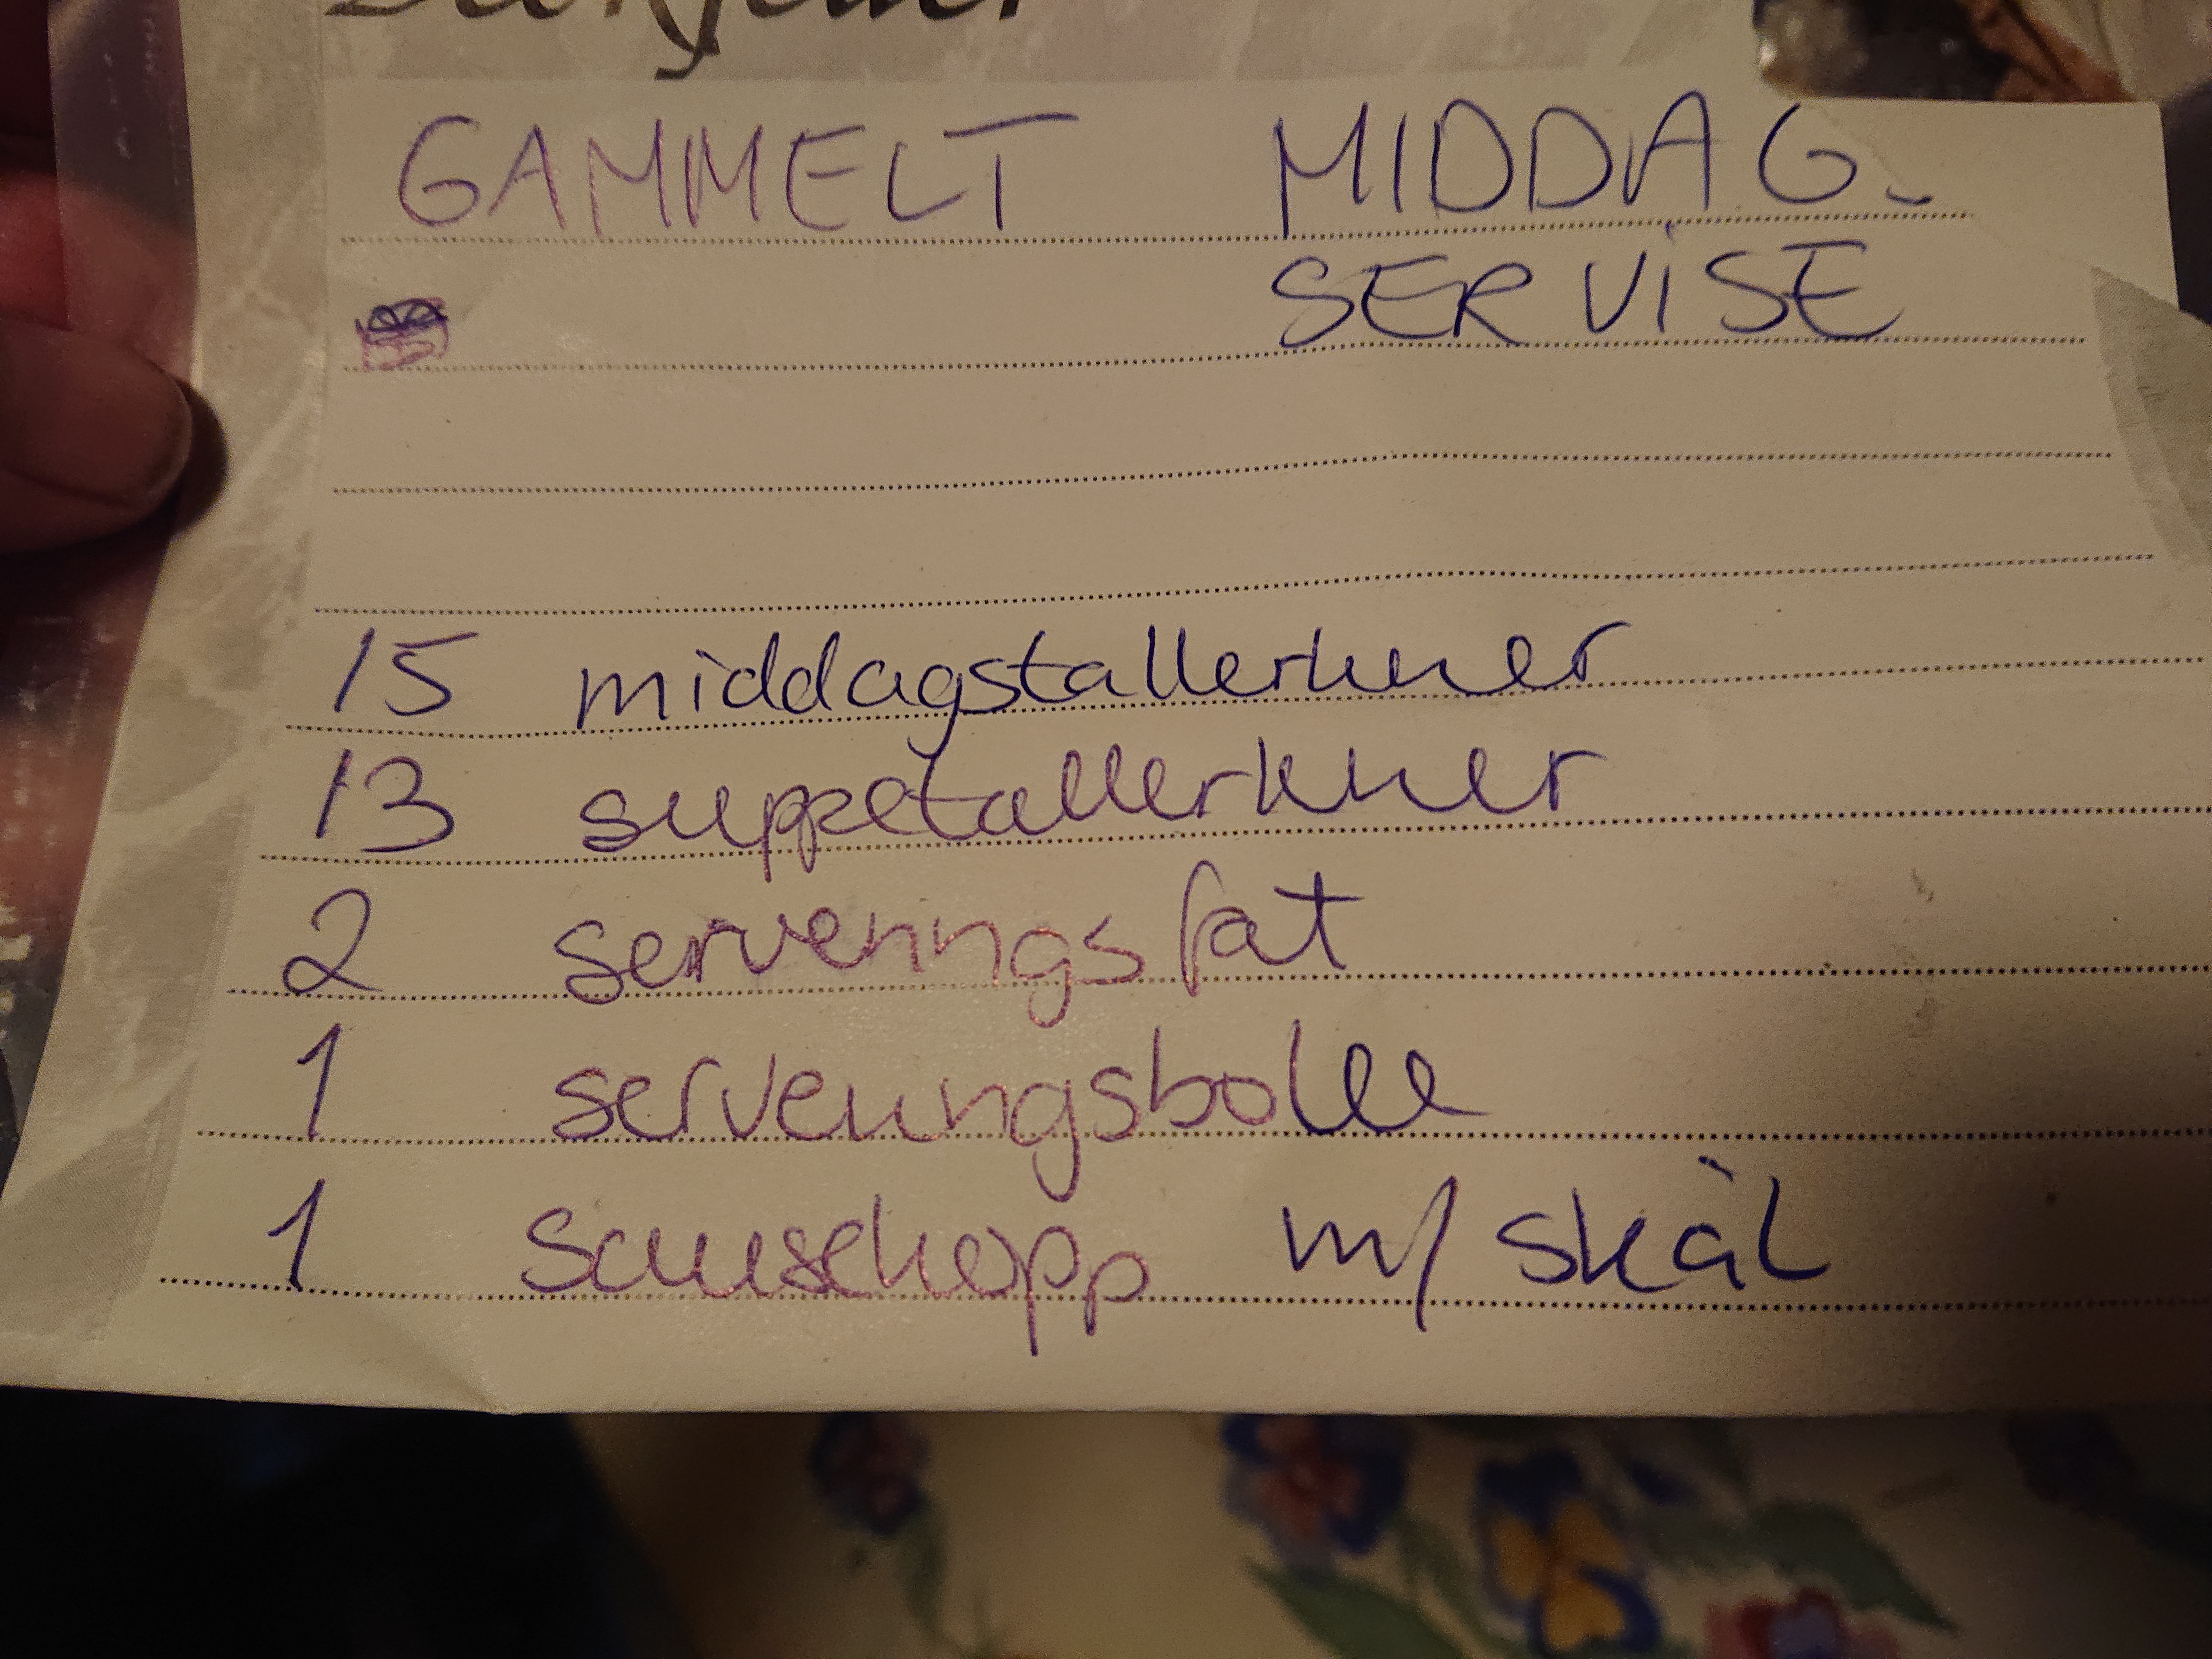 GAMMELT MIDDAG-
SERVISE
15 middagstallerkner
13 suppetallerkner
2 serveringsfat
1 serveringsbolle
1 sauschopp m/ skål